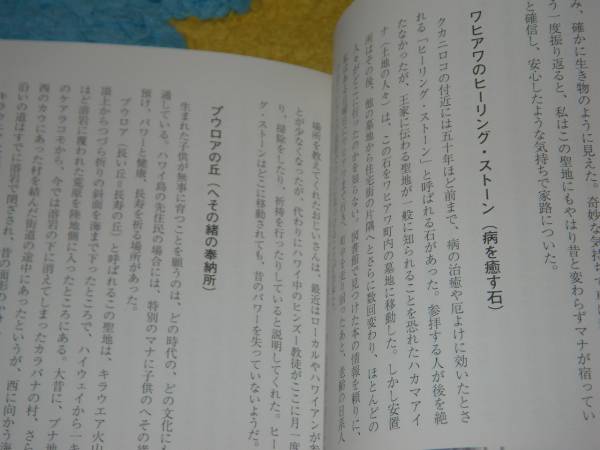 み、確かに生き物のように見えた。奇妙な気持ちで車に
う一度振り返ると、私はこの聖地にもやはり昔と変わらずマナが宿ってい
と確信し、安心したような気持ちで家路についた。
ワヒアワのヒーリング・ストーン(病を癒す石)
クカニロコの付近には五十年ほど前まで、病の治癒や厄よけに効いたとさ
れる「ヒーリング・ストーン」と呼ばれる石があった。参拝する人が後を絶
たなかったが、王家に伝わる聖地が一般に知られることを恐れたハカマアイ
ナ(土地の人々)は、この石をワヒアワ町内の墓地に移動した。しかし安置
所はその後、他の墓地から住宅街の片隅へとさらに数回変わり、ほとんどの
人々がどこに行ったのかを知らない。図書館で見つけた本の情報を頼りに、
場所を教えてくれたおじいさんは、最近はローカルやハワイアンが参
とが少なくなったが、代わりにハワイ中のヒンズー教徒がここに月一度
り、掃除をしたり、祈祷を行ったりしていると説明してくれた。ヒー
グ・ストーンはどこに移動されても、昔のパワーを失っていないようだ。
プウロアの丘(へその緒の奉納所)
生まれた子供が無事に育つことを願うのは、どの時代の、どの文化にも
通している。ハワイ島の先住民の場合には、特別のマナに子供のへその緒
預け、パワーと健康、長寿を祈る場所があった。
プウロア(長い丘=長寿の丘)と呼ばれるこの聖地は、キラウエア火山
頂上からつづら折りの斜面を海まで下ったところで、ハイウェイから一キ
ほど溶岩に覆われた荒原を陸地側に入ったところにある。大昔に、プナ地
のケアラコモから、今では溶岩の下に消えてしまったカラパナの村、さら
西のカウにあった村を結んだ街道の途中にあったというが、西に向かう海
沿いの道はすでに溶岩で閉ざされ、昔の面影の